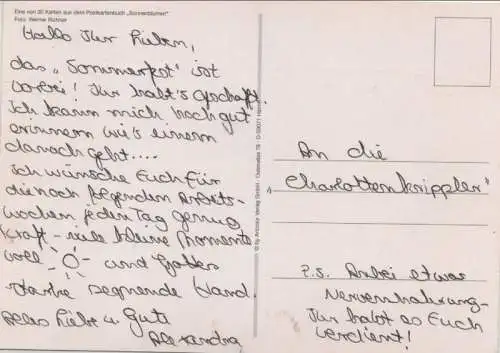 Eine von 30 Karten aus dem Postkartenbuch „Sonnenblumen"
Foto: Werner Richner
Hallo Ihr Lieben,
das „Sommerfest" ist
vorbei! Ihr habt's geschafft.
Ich kann mich noch gut
erinnern wie's einem
danach geht....
Ich wünsche Euch für
die noch folgenden Arbeits-
wochen jeden Tag genug
Kraft - viele kleine Momente
voll und Gottes
starke segnende Hand.
Alles Liebe u. Gute
Alexandra
© by Artcolor Verlag GmbH · 78 · D-59071 Hamm
An die
„Charlottenknippler"
P.S. Anbei etwas
Nervennahrung-
Ihr habt es Euch
verdient!